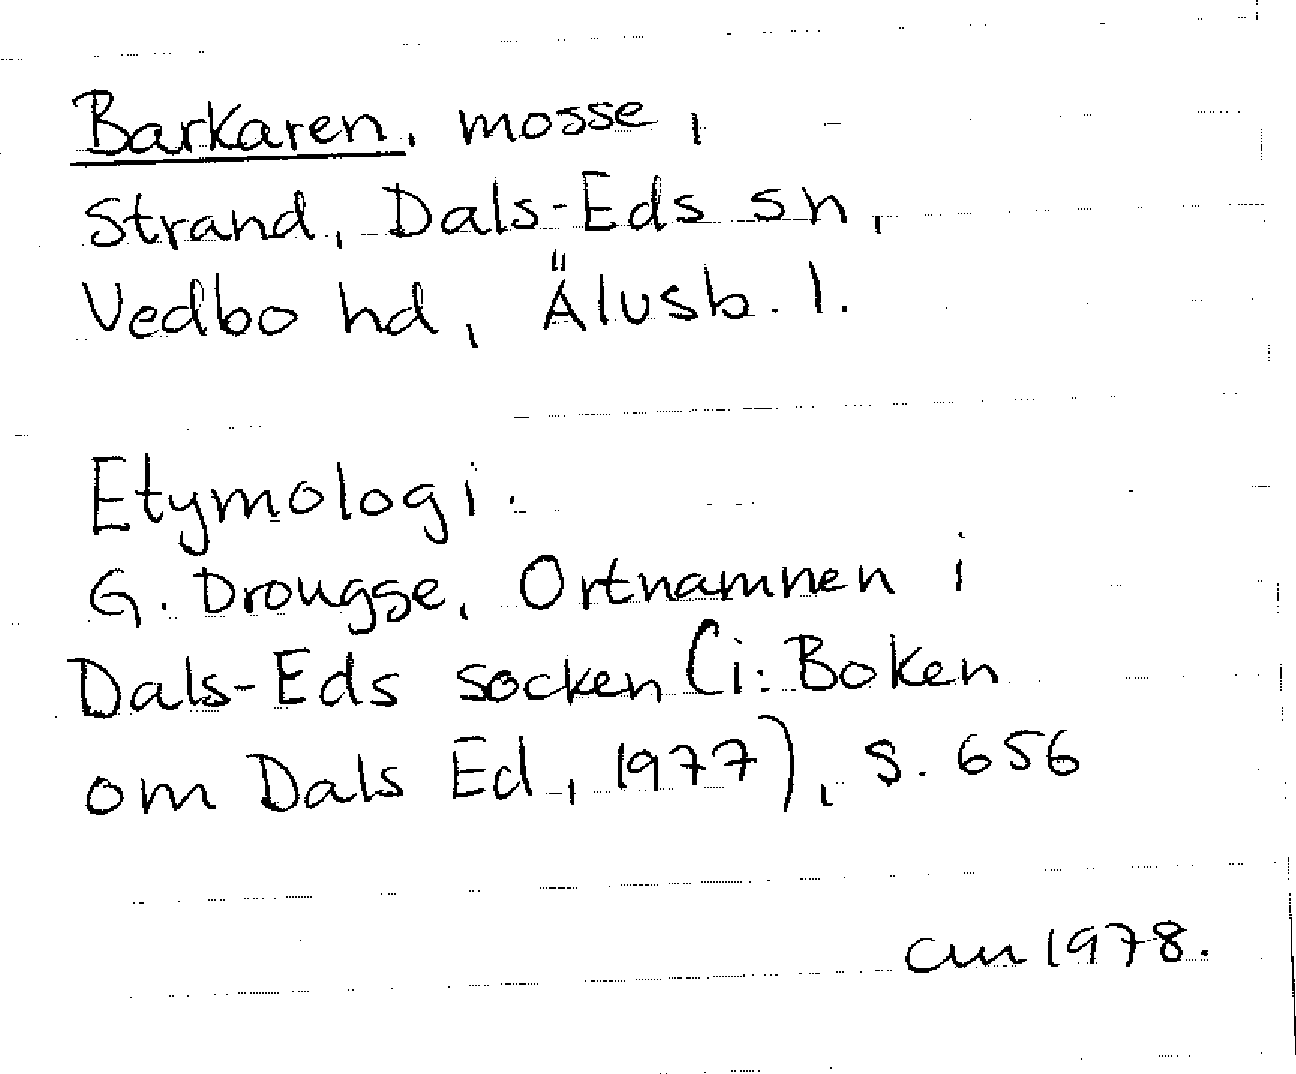 Barkaren, mosse,
Strand, Dals-Eds sn,
Vedbo hd, Älvsb. l.
Etymologi:
G. Drougge, Ortnamnen i
Dals-Eds socken (i: Boken
om Dals Ed, 1977), s. 656
1978.